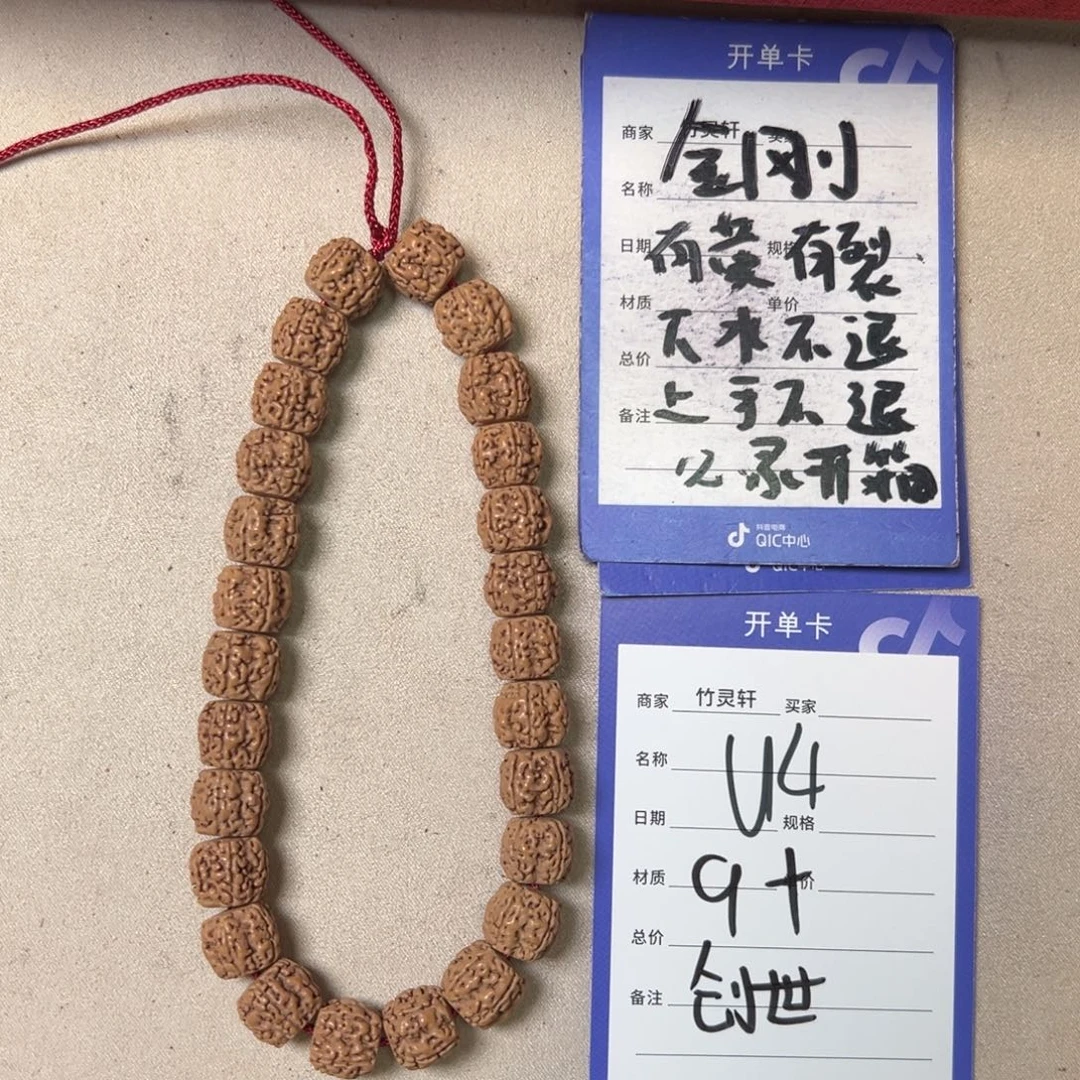 开单卡
商家 竹灵轩
金刚
名称
日期 规格
有黄有裂
材质 单价
下水不退
总价
上手不退
备注
记录开箱
抖音电商
QIC中心
QIC中心
开单卡
商家 竹灵轩 买家
名称
U4
日期 规格
材质 9+ 价
总价
备注 创世